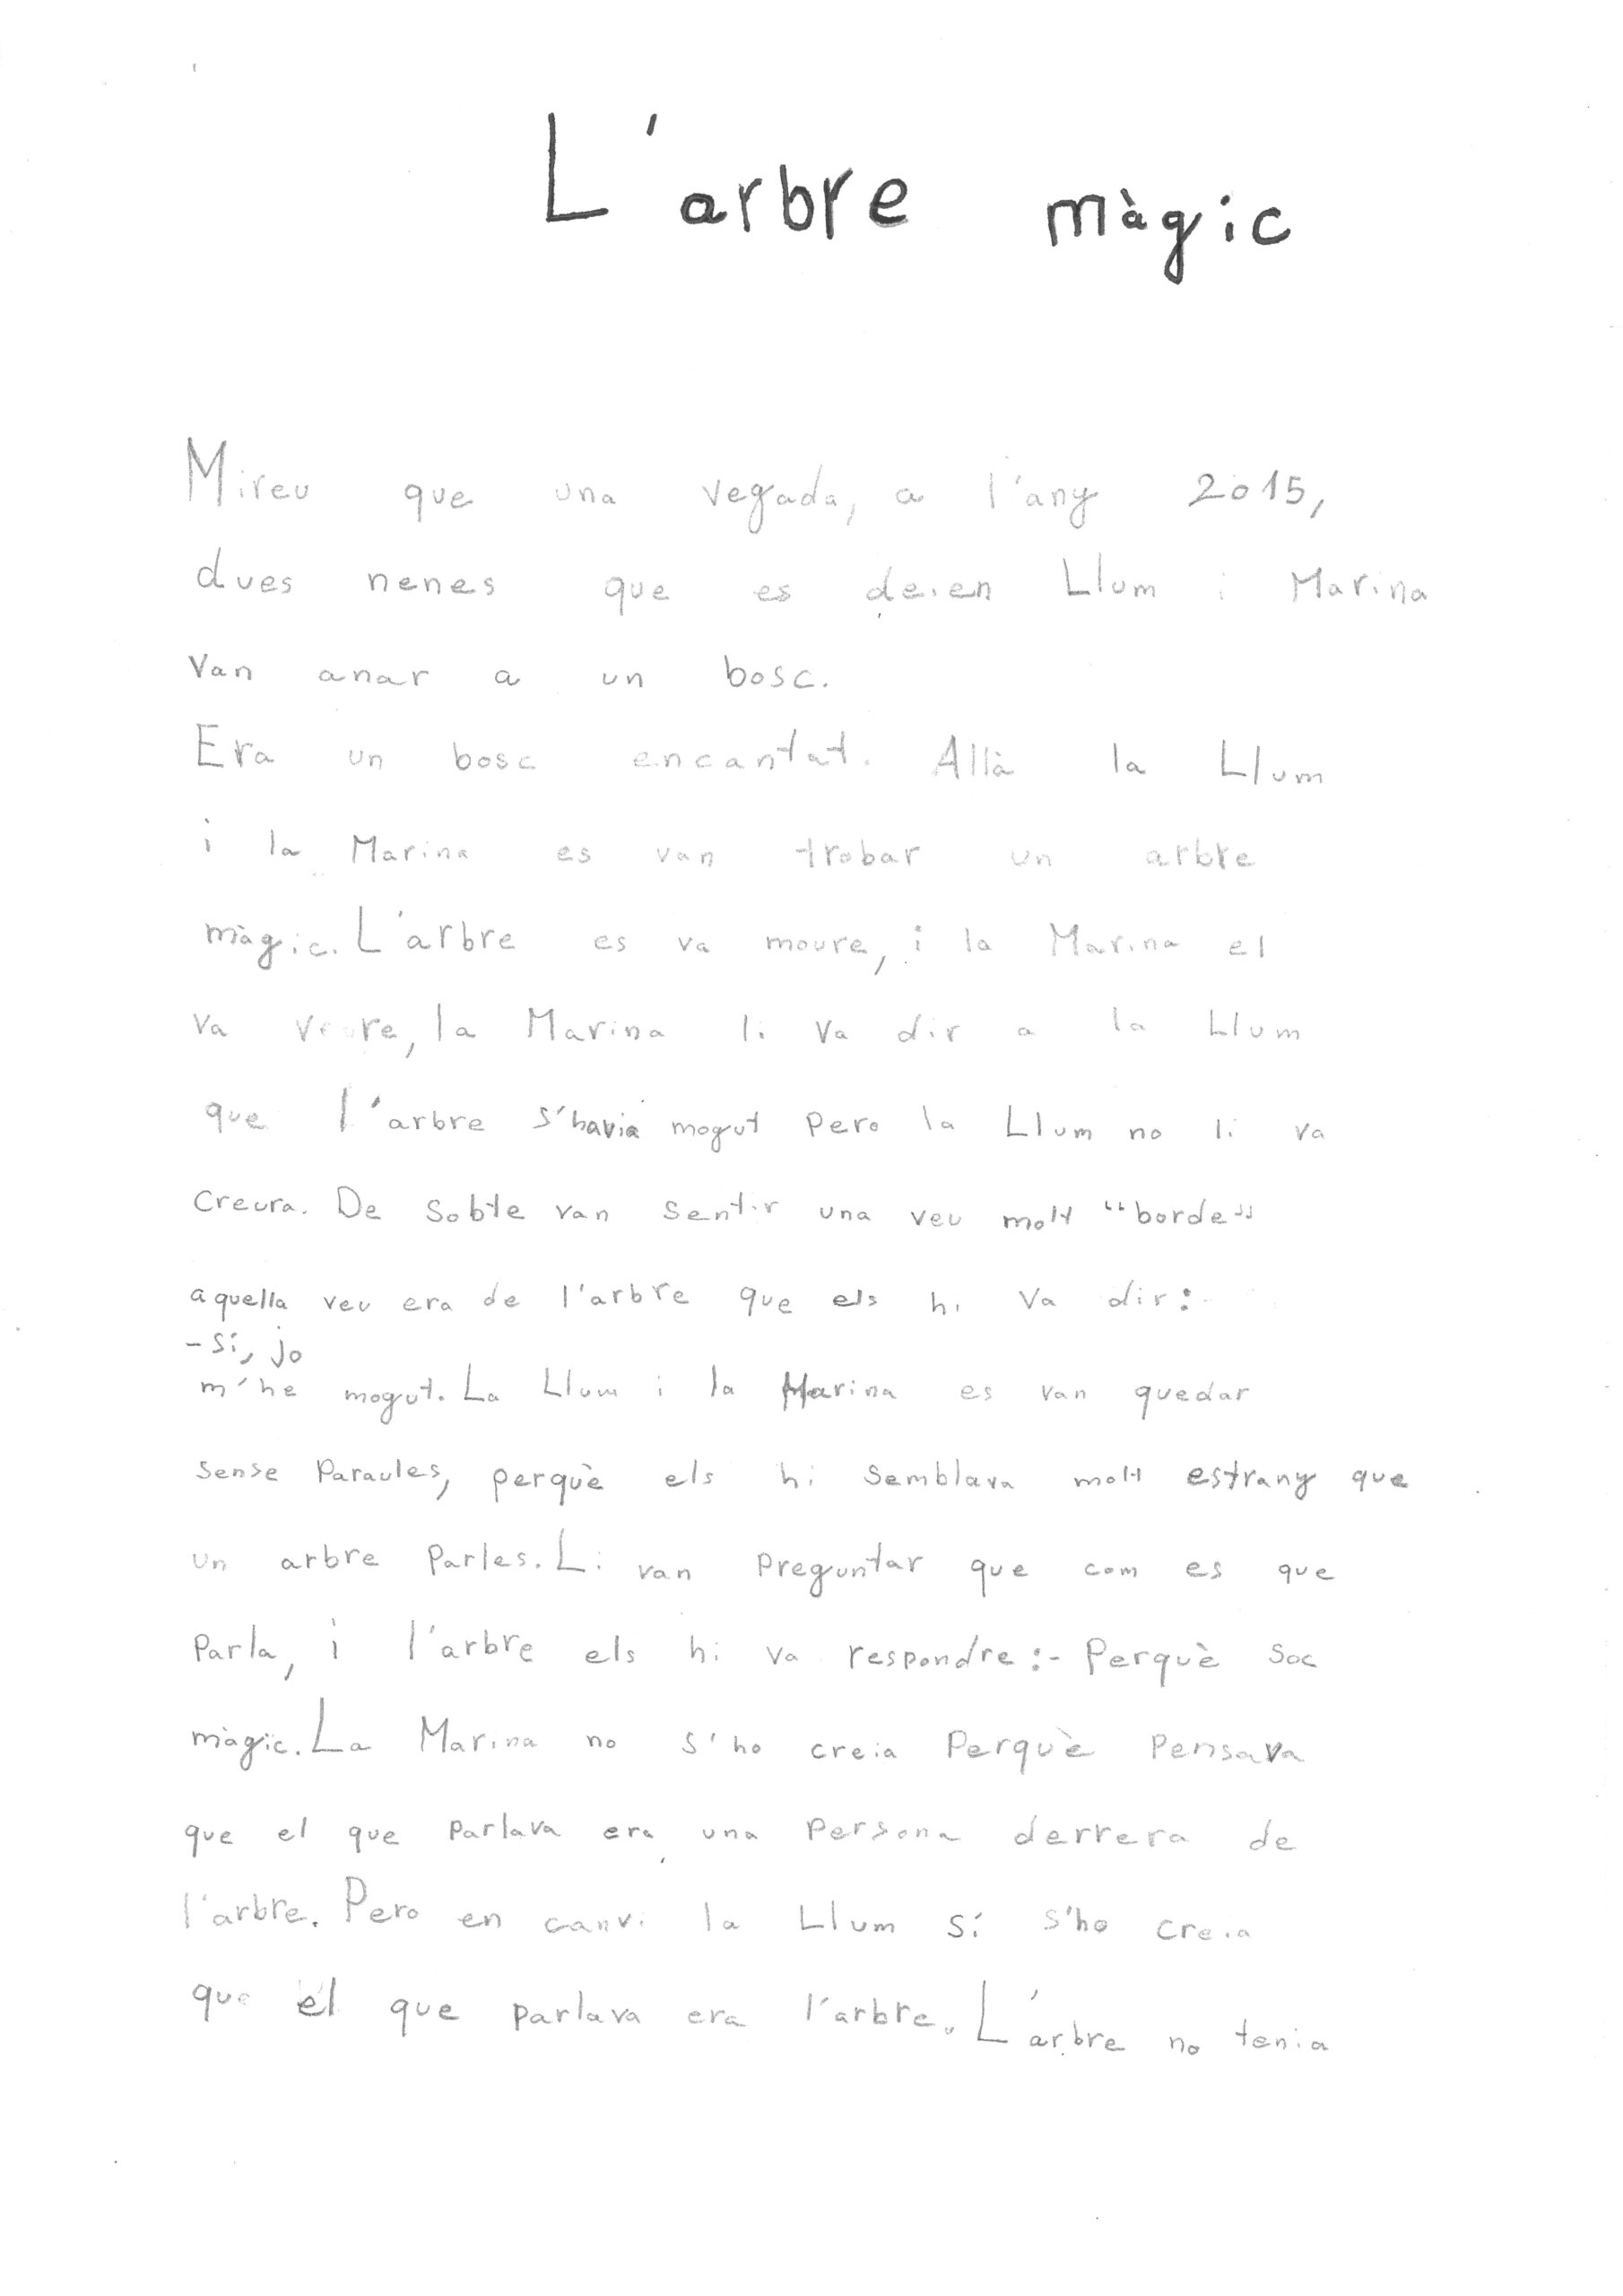 L'arbre màgic
Mireu que una vegada, a l'any 2015,
dues nenes que es deien Llum i Marina
van anar a un bosc.
Era un bosc encantat. Allà la Llum
i la Marina es van trobar un arbre
màgic. L'arbre es va moure, i la Marina el
va veure, la Marina li va dir a la Llum
que l'arbre s'havia mogut pero la Llum no li va
creura. De sobte van sentir una veu molt "borde"
aquella veu era de l'arbre que els hi va dir:
- Sí, jo
m'he mogut. La Llum i la Marina es van quedar
sense paraules, perquè els hi semblava molt estrany que
un arbre parles. Li van preguntar que com es que
parla, i l'arbre els hi va respondre:- Perquè soc
màgic. La Marina no s'ho creia perquè pensava
que el que parlava era una persona derrera de
l'arbre. Pero en canvi la Llum sí s'ho creia
que el que parlava era l'arbre. L'arbre no tenia